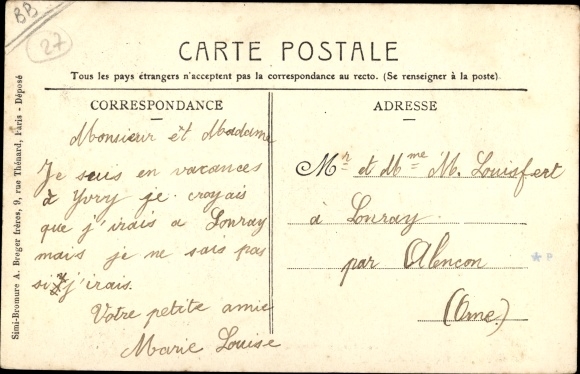 BB
27
CARTE POSTALE
Tous les pays étrangers n'acceptent pas la correspondance au recto. (Se renseigner à la poste).
CORRESPONDANCE
Monsieur et Madame
Je suis en vacances
à Yvry je croyais
que j'irais a Lonray
mais je ne sais pas
si j'irais.
Votre petite amie
Marie Louise
ADRESSE
Mr et Mme M. Louisfert
à Lonray.
par Alencon
(Orne.)
Simi-Bromure A. Breger frères, 9, rue Thénard, Paris - Déposé